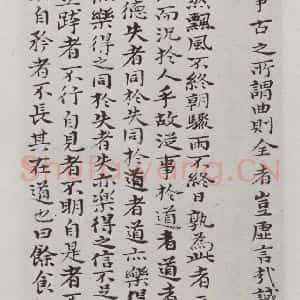 争古之所謂曲則全者豈虚言哉誠
然飄風不終朝驟雨不終日孰為此者
而況於人乎故從事於道者道者
德失者同於失同於道者道亦樂得
亦樂得之同於失者失樂得之信不足
跨者不行自見者不明自是者不
自矜者不長其在道也曰餘食
Shufawang.CN